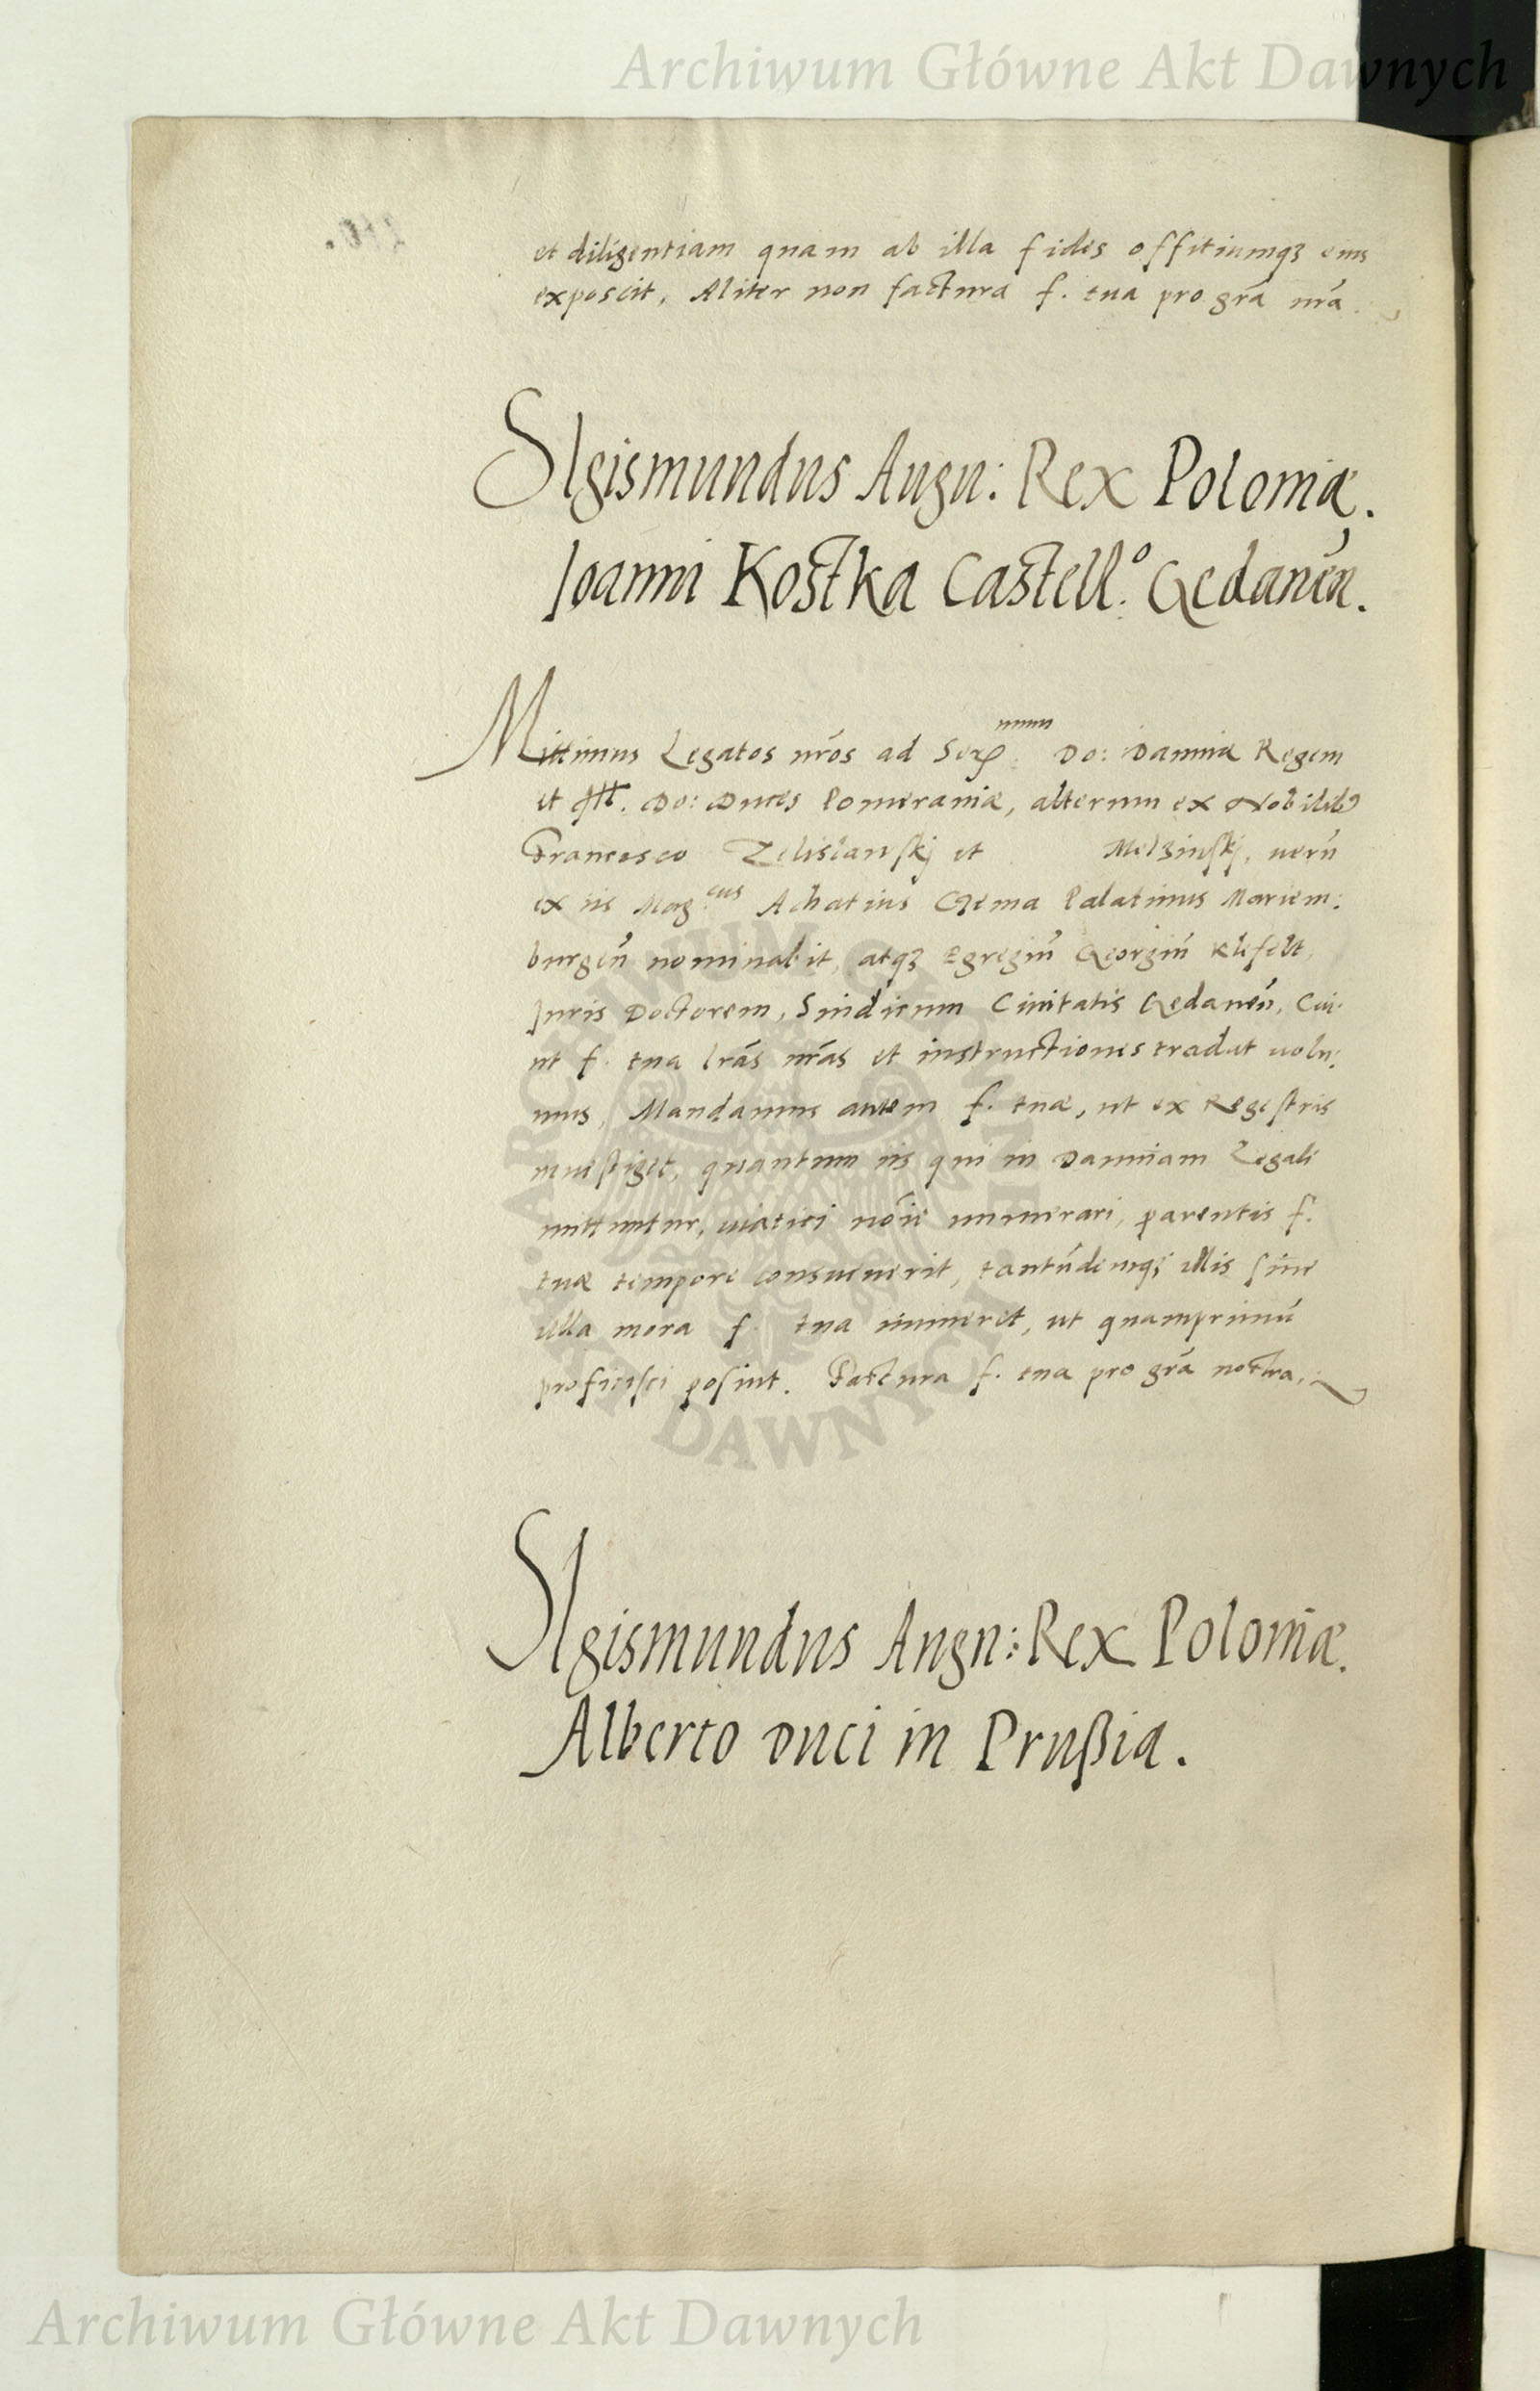 Archiwum Główne Akt Dawnych
et diligentiam quam ab illa fides offitiumqꝫ eius
exposcit, Aliter non factura f. tua pro gr̃a nr̃a.
SIgismundus Augu: Rex Poloniæ.
Ioanni Kostka Castell.º Gedaneñ.
Mittimus Legatos nr̃os ad Ser. mum Do: Daniæ Regem
et Ill. Do: Duces Pomeraniæ, alterum ex Nobilibꝰ
Francesco Zelislanskj et Melzinskj, uerũ
ex iis Mag.cus Achatius Czema Palatinus Mariem:
burgeñ nominabit, atqꝫ Egregiũ Georgiũ Klefelt,
Juris Doctorem, Sindicum Ciuitatis Gedaneñ, Cui
ut f. tua lr̃as nr̃as et instructiones tradat uolu:
mus, Mandamus autem f. tuæ, ut ex Regestris
inuestiget, quantum iis qui in Daniam Legati
mittuntur, uiatici nõie numerari, parentis f.
tuæ tempore consueuerit, tantũdemqꝫ illis sine
ulla mora f. tua numeret, ut quamprimũ
proficisci possint. Factura f. tua pro gr̃a nostra.
SIgismundus Augu: Rex Poloniæ.
Alberto Duci in Prußia.
ARCHIWUM GŁÓWNE AKT DAWNYCH
Archiwum Główne Akt Dawnych